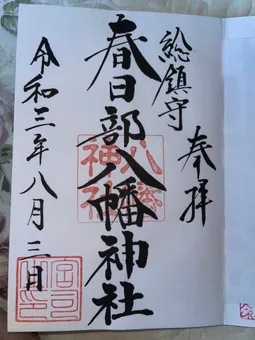 奉拝
総鎮守
春日部八幡神社
八幡神社
令和三年八月三日